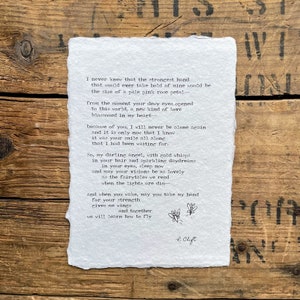 I never knew that the strongest hand
that would ever take hold of mine would be
the size of a pale pink rose petal—
From the moment your dewy eyes opened
to this world, a new kind of love
blossomed in my heart
because of you, I will never be alone again
and it is only now that I know
it was your smile all along
that I had been waiting for.
So, my darling angel, with gold wings
in your hair and sparkling daydreams
in your eyes, sleep now
and may your visions be as lovely
as the fairytales we read
when the lights are dim—
and when you wake, may you take my hand
for your strength
gives me wings
and together
we will learn how to fly